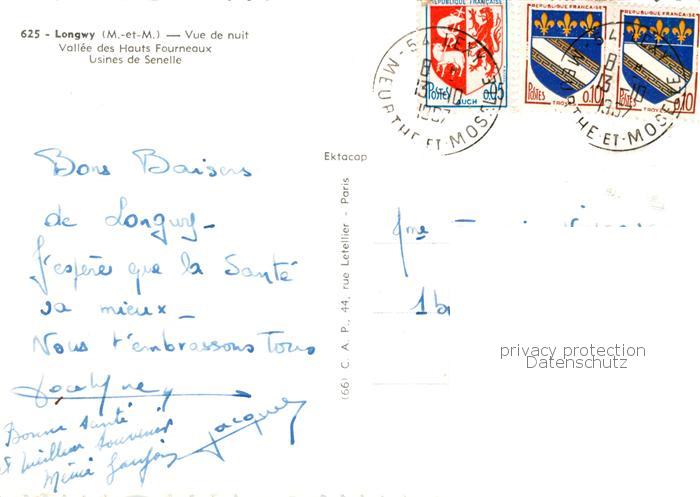 625 - Longwy (M.-et-M.) — Vue de nuit
Vallée des Hauts Fourneaux
Usines de Senelle
RÉPUBLIQUE FRANÇAISE
POSTES 0,05
AUCH
RÉPUBLIQUE FRANÇAISE
POSTES 0,10
TROYES
RÉPUBLIQUE FRANÇAISE
POSTES 0,10
54
8 H
13 - 10
1967
MEURTHE-ET-MOSELLE
54
8 H
13 - 10
1967
MEURTHE-ET-MOSELLE
Ektacap
(66) C. A. P., 44, rue Letellier - Paris
Bons Baisers
de Longwy -
J'espère que la Santé
va mieux -
Nous t'embrassons Tous
Jocelyne
Jacques
Bonne Santé
et meilleur souvenir
Mémé
Mme
privacy protection
Datenschutz